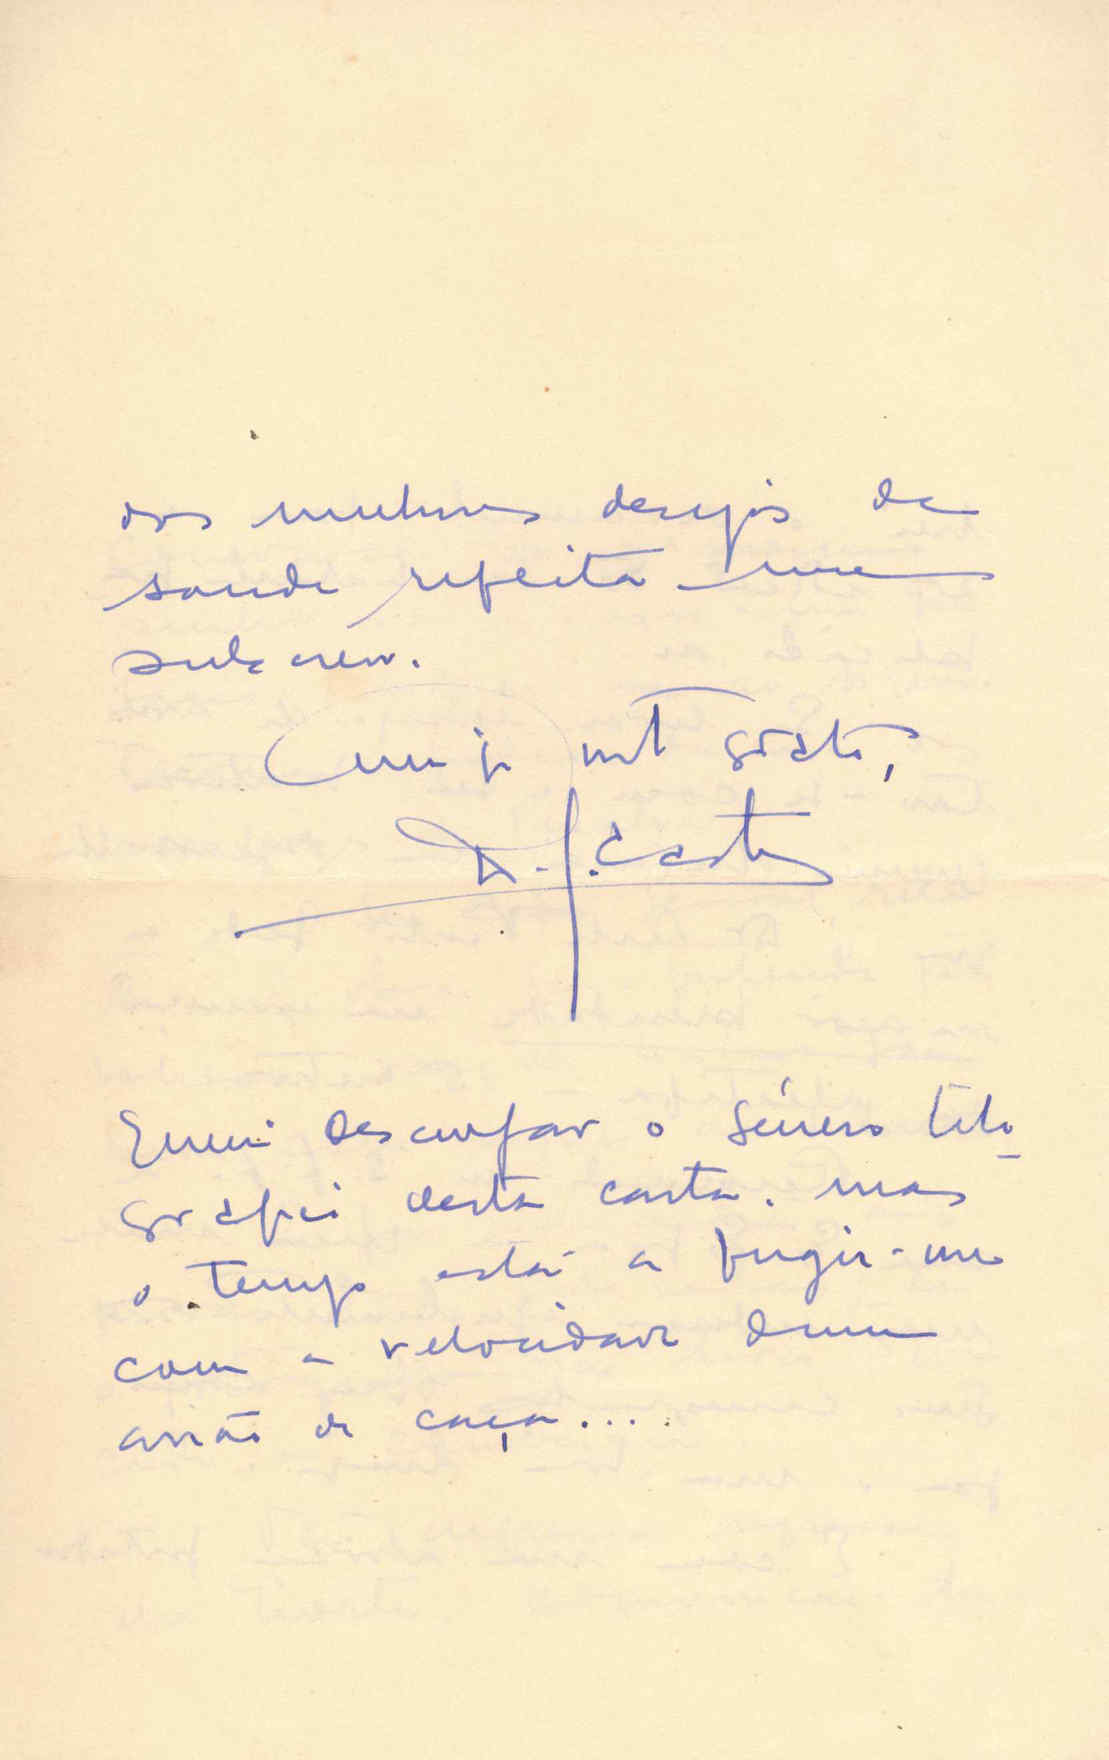 dos melhores desejos de
saude refeita me
subscrevo.
Amigo mt grato,
A. J. Castro
Queira desculpar o género tele
gráfico desta carta. mas
o tempo está a fugir-me
com a velocidade dum
avião de caça....